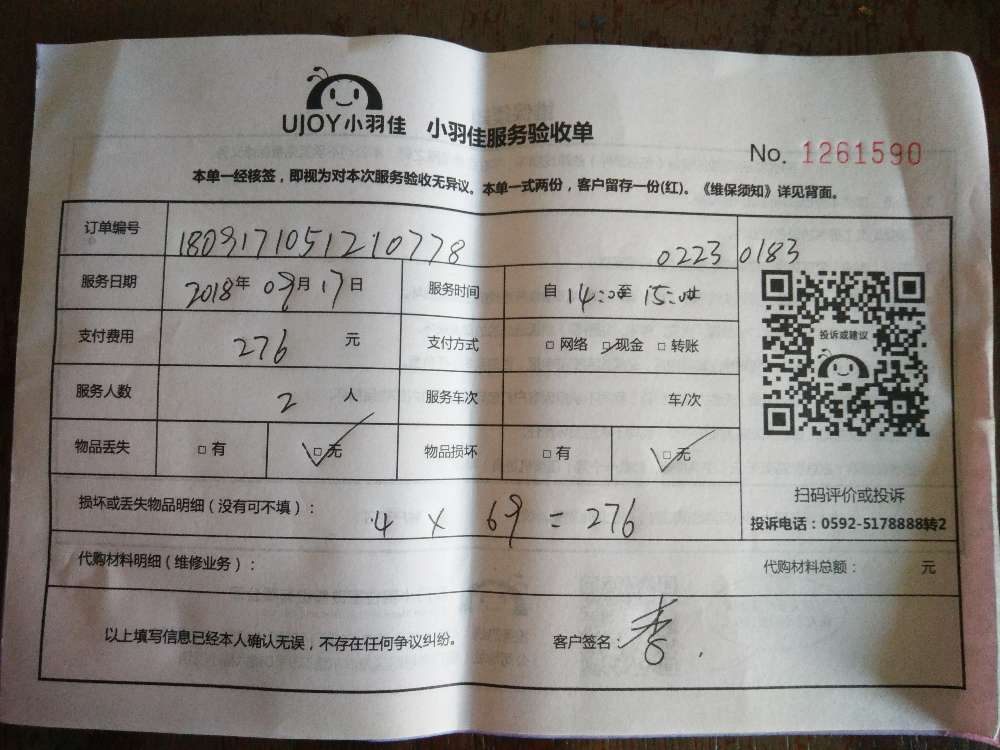 UJOY小羽佳 小羽佳服务验收单
No. 1261590
本单一经核签，即视为对本次服务验收无异议。本单一式两份，客户留存一份(红)。《维保须知》详见背面。
订单编号 1809171051210778 0223 0183
服务日期 2018年 09月 17日 服务时间 自 14:00至 15:00
支付费用 276 元 支付方式 □ 网络 ☑ 现金 □ 转账
投诉或建议
服务人数 2 人 服务车次 车/次
物品丢失 □ 有 ☑ 无 物品损坏 □ 有 ☑ 无
扫码评价或投诉
损坏或丢失物品明细（没有可不填）： 4 × 69 = 276
投诉电话：0592-5178888转2
代购材料明细（维修业务）： 代购材料总额： 元
以上填写信息已经本人确认无误，不存在任何争议纠纷。 客户签名：李